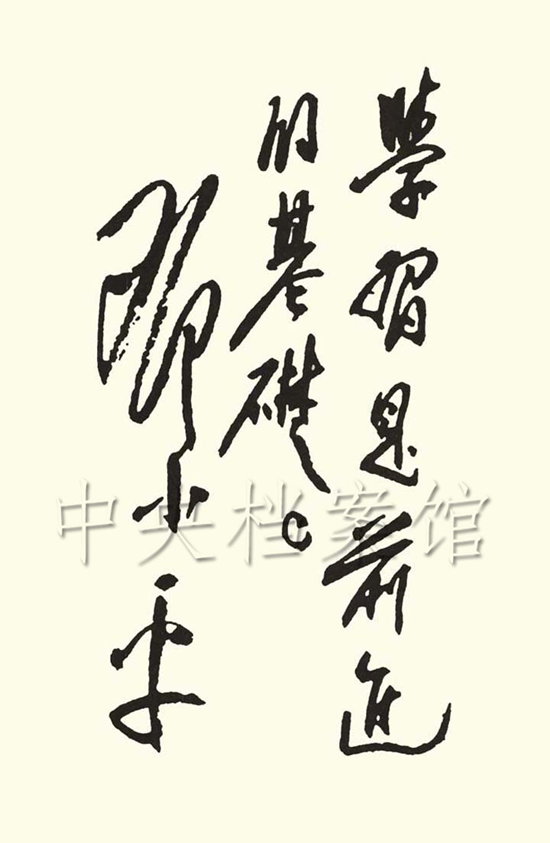 學習是前進
的基礎。
邓小平
中央档案馆